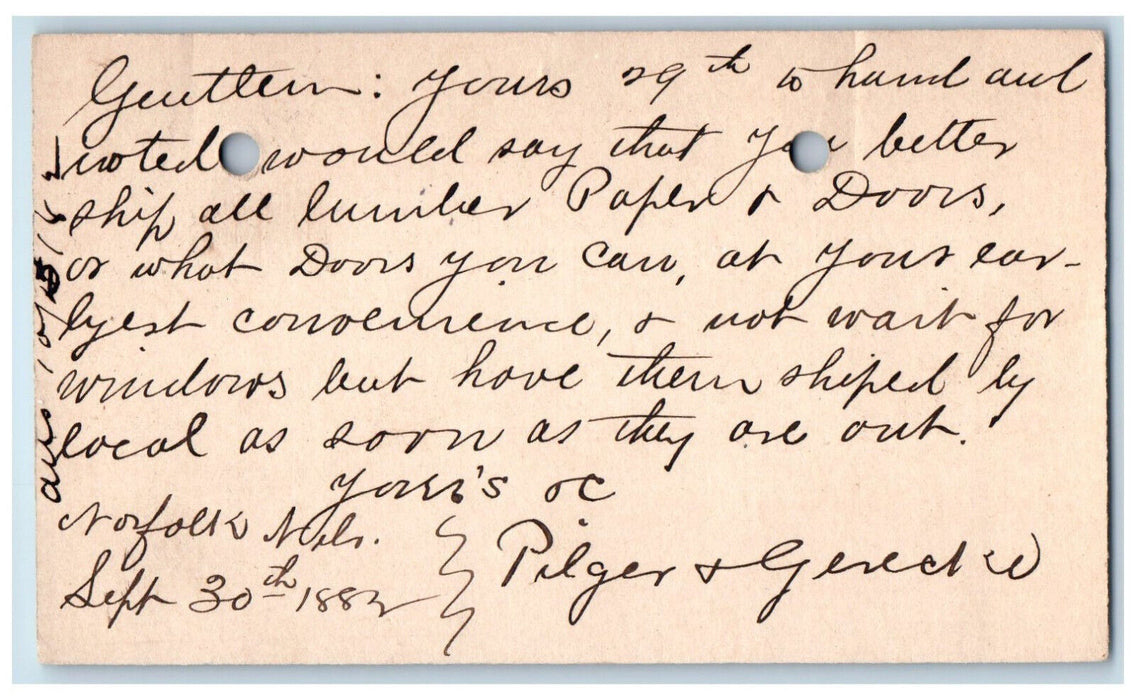 Gentlem: Yours 29th to hand and
noted would say that you better
ship all lumber Paper & Doors,
or what Doors you can, at your ear-
lyest convenience, & not wait for
windows but have them shiped by
local as soon as they are out.
Your's &c
Pilger & Gerecke
Norfolk Neb.
Sept 30th 1882